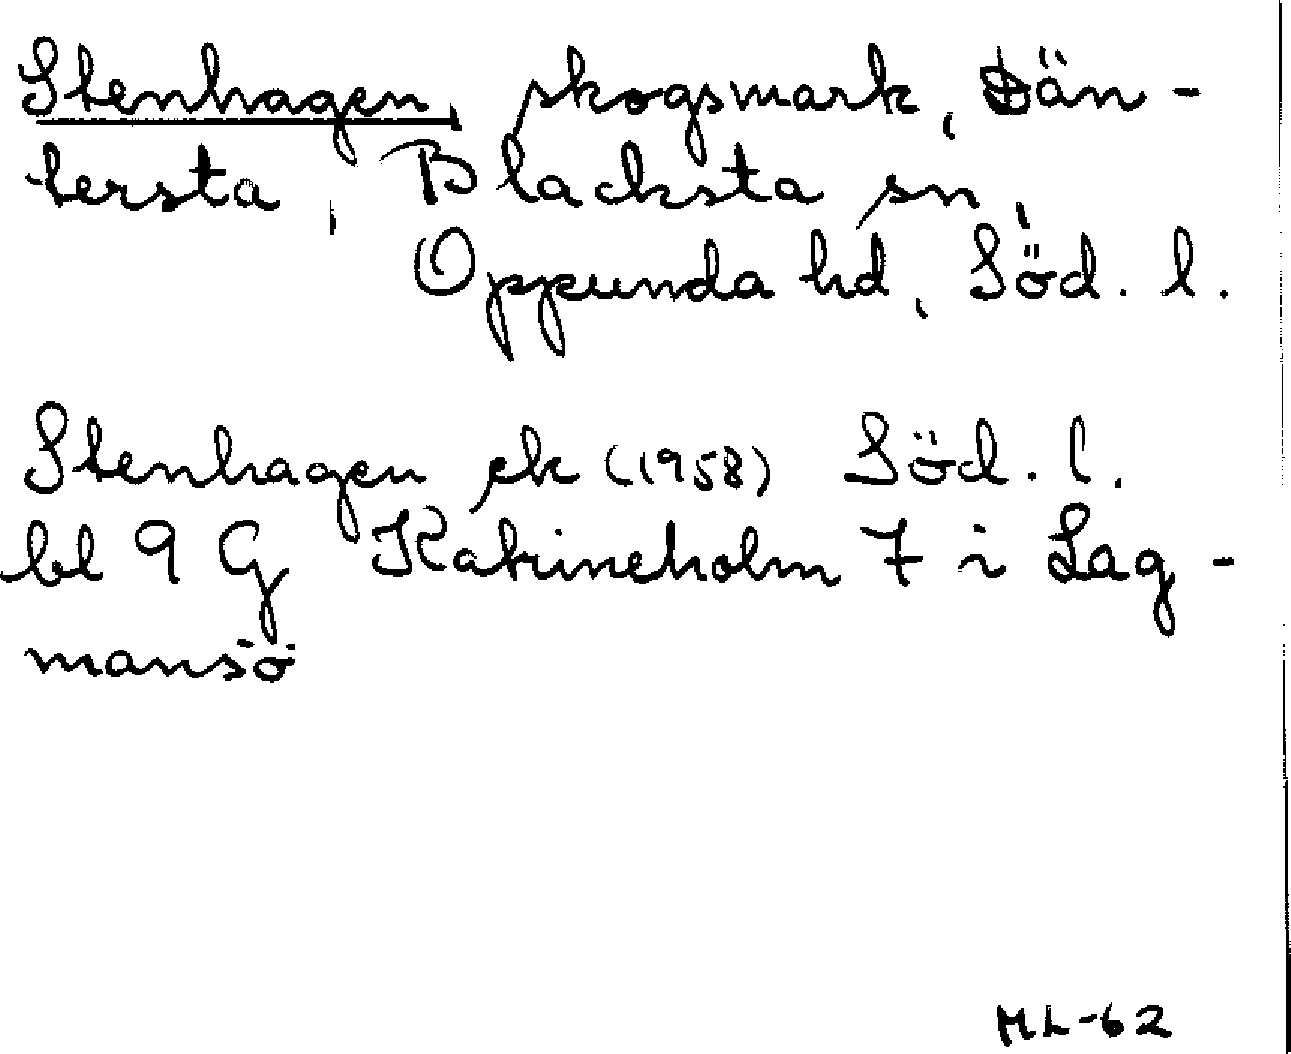 Stenhagen, skogsmark, Dän-
tersta, Blacksta sn,
Oppunda hd, Söd. l.
Stenhagen ek (1958) Söd. l.
bl 9 G Katrineholm 7 i Lag-
mansö
ML-62